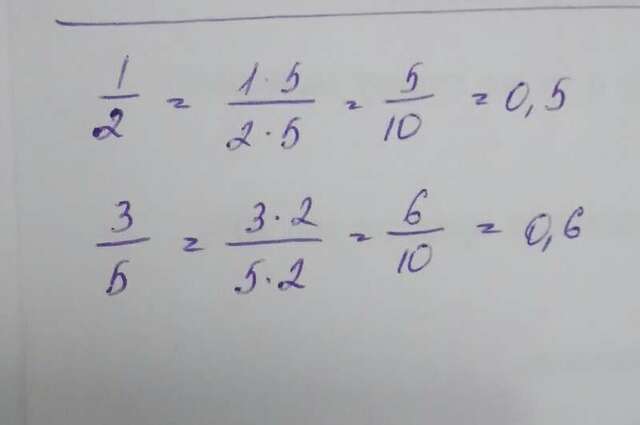 1/2 = 1·5/2·5 = 5/10 = 0,5
3/5 = 3·2/5·2 = 6/10 = 0,6